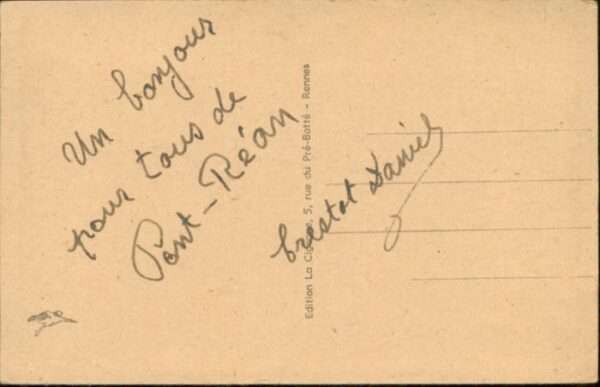 Un bonjour
pour tous de
Pont-Réan
Daniel
Edition La Cigogne, 5, rue du Pré-Botté - Rennes